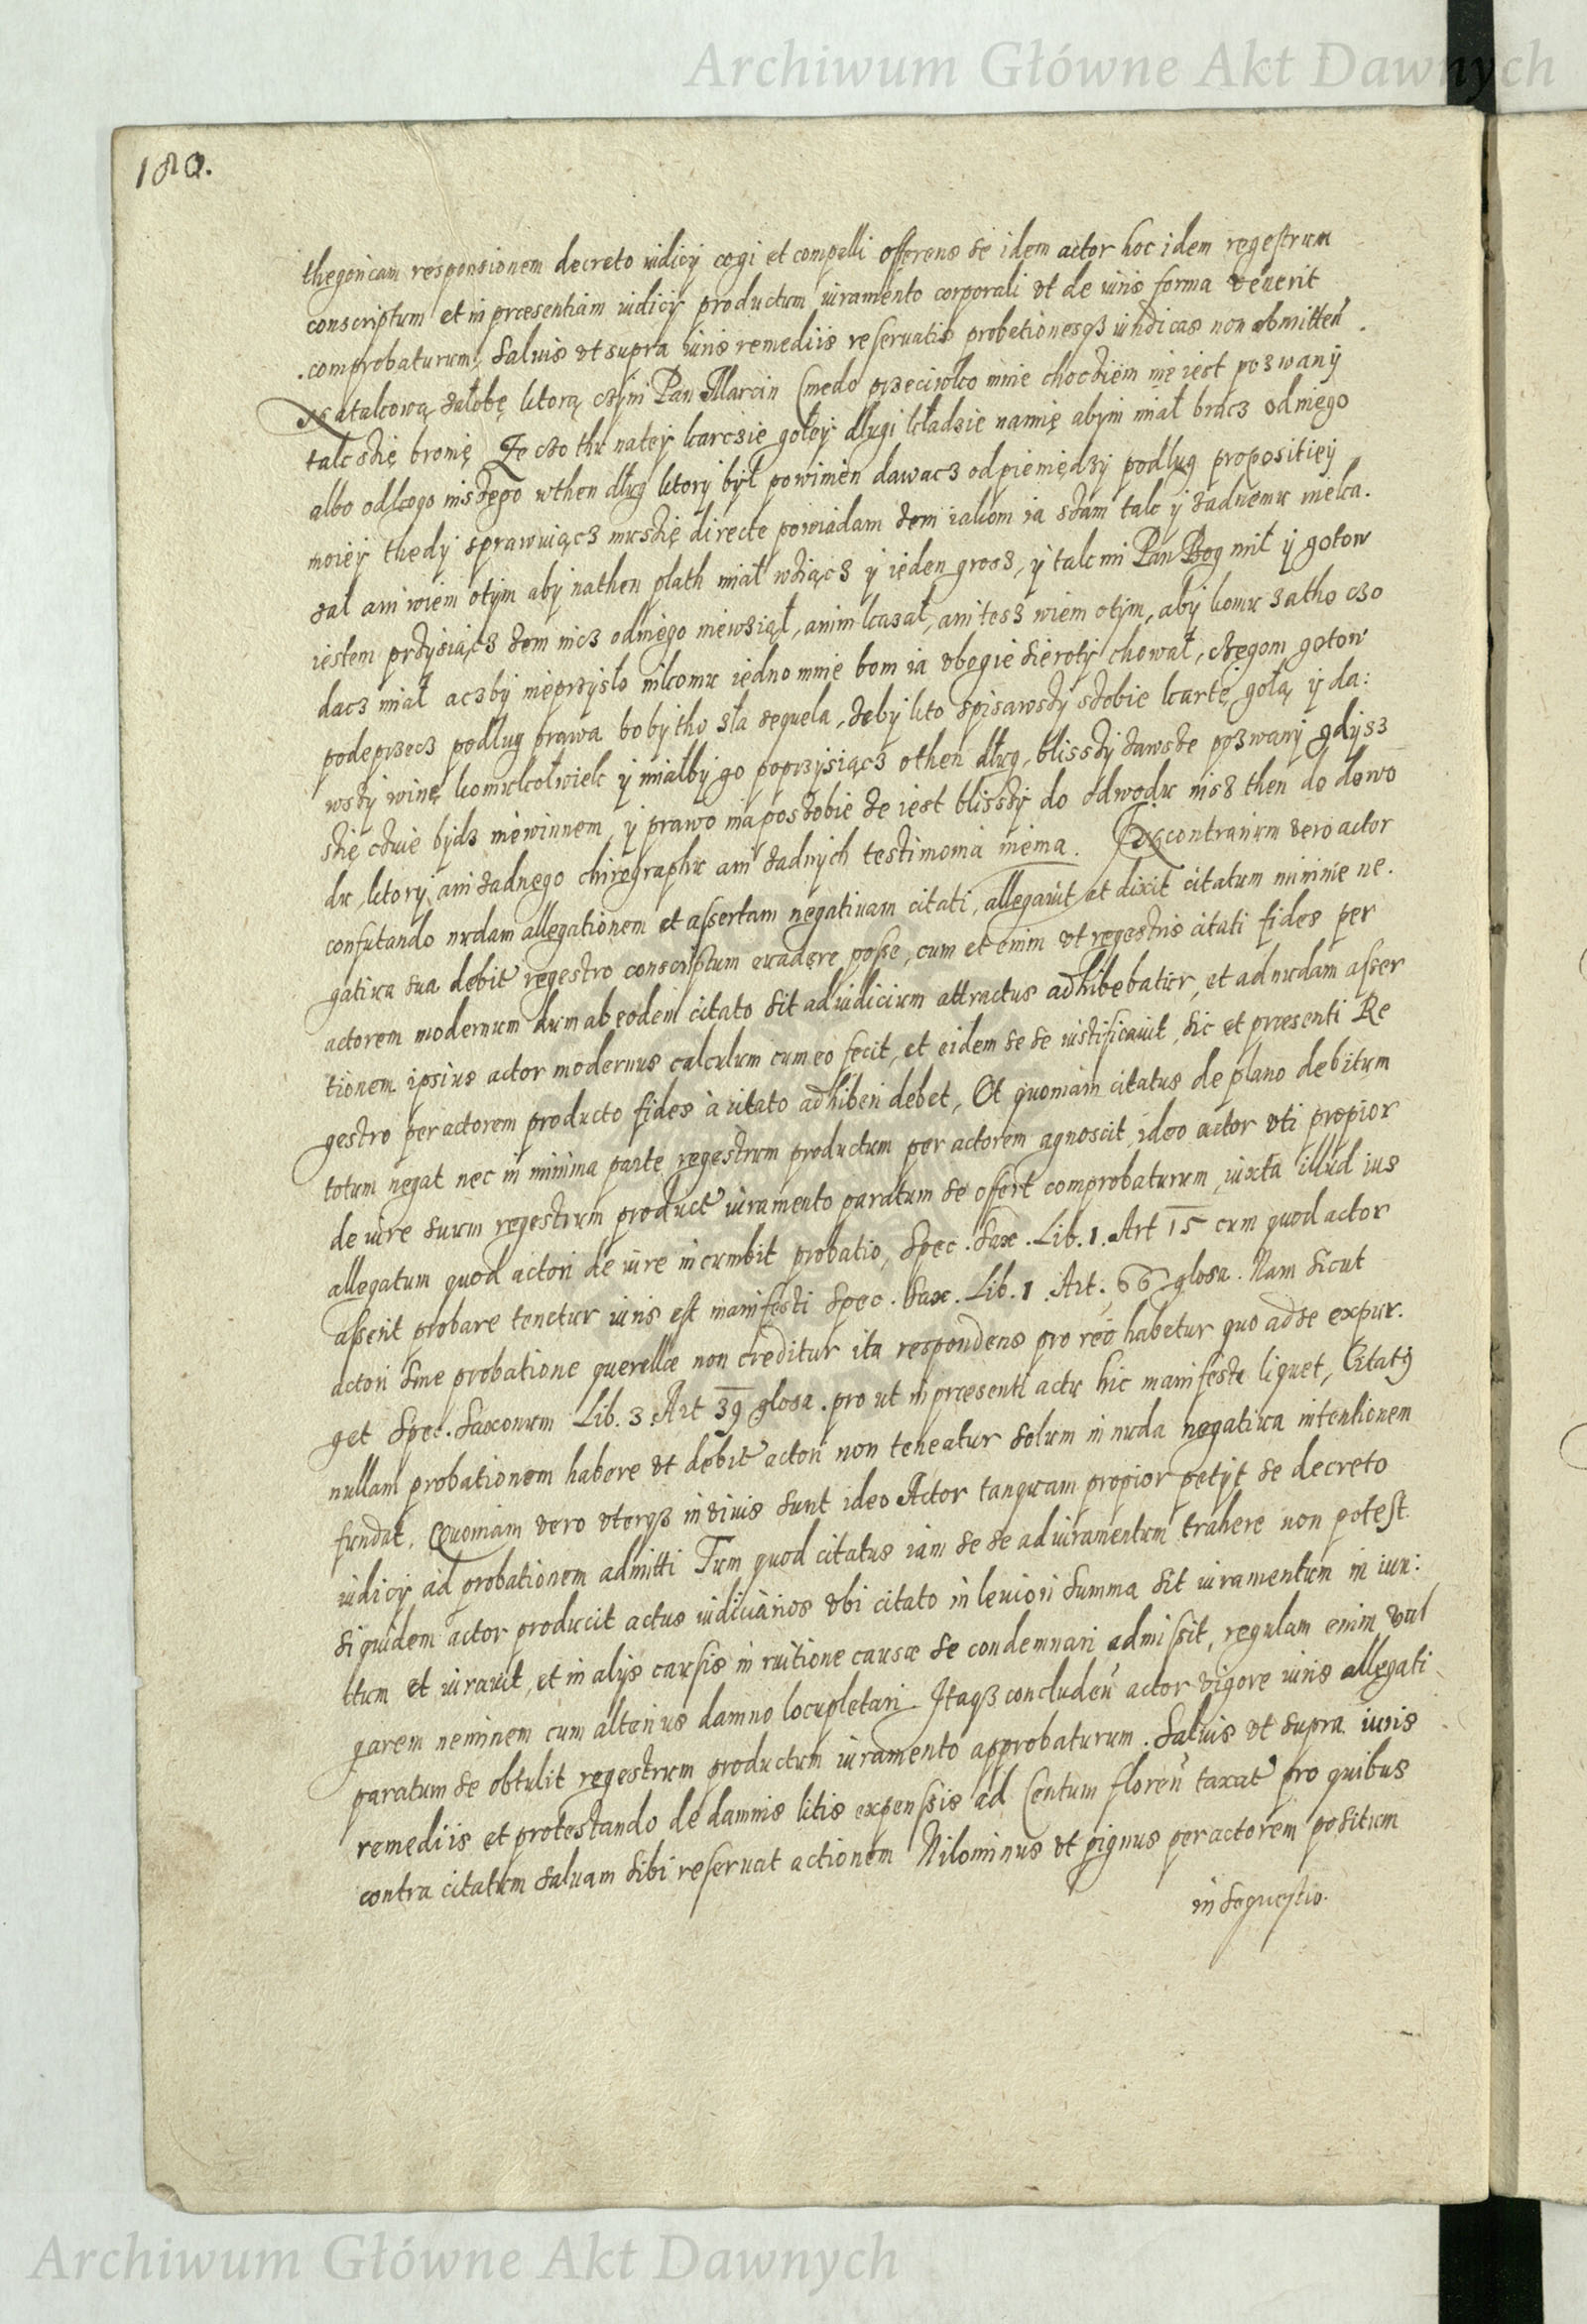 Archiwum Główne Akt Dawnych
180.
thegoricam responsionem decreto iudicij cogi et compelli offerens se idem actor hoc idem regestrum
conscriptum et in præsentiam iudicij productum iuramento corporali vt de iuris forma venerit
comprobaturum, saluis vt supra iuris remediis reseruatis probationesqȝ iuridicas non obmitteń.
Na takową żałobę ktorą czÿni Pan Marcin Cmedo przeciwko mnie chocżiem nie iest pozwanÿ
tak sżię bronię Że czo thu natey karczie gołeÿ długi kładzie namię abÿm miał bracz odniego
albo odkogo inszego wthen dług ktorÿ bÿł powinien dawacz odpieniędzÿ podług propositieÿ
moieÿ thedÿ sprawuiącz muszię directe powiadam żem iakom ia szam tak ÿ żadnemu nieka.
zał ani wiem otÿm abÿ nathen plath miał wziącz ÿ ięden grosz, ÿ tak mi Pan Bog mił ÿ gotow
iestem przÿsiącz żem nicz odniego niewziął, anim kazał, ani tesz wiem otÿm, abÿ komu zatho czo
dacz miał aczbÿ nieprzÿsło nikomu iędno mnie bom ia vbogie sierotÿ chował, cżęgom gotow
podeprzecz podług prawa bo bÿ tho zła sequela, żebÿ kto spisawszÿ sżobie kartę gołą ÿ da:
wszÿ winę komukolwiek ÿ miałbÿ go poprzÿsiącz othen dług, blisszÿ zawsze pozwanÿ gdÿsz
szię czuie bÿdz niewinnem, ÿ prawo ma posżobie że iest blisszÿ do odwodu nisz then do dowo
du, ktorÿ ani żadnego chirographu ani żadnÿch testimonia niema. Ex contrarium vero actor
confutando nudam allegationem et assertam negatiuam citati, allegauit et dixit citatum minime ne.
gatiua sua debit regestro conscriptum euadere posse, cum et enim vt regestris citati fides per
actorem modernum dum ab eodem citato sit ad iudicium attractus adhibebatur, et ad nudam asser
tionem ipsius actor modernus calculum cum eo fecit, et eidem se se iustificauit, sic et præsenti Re
gestro per actorem producto fides à citato adhiberi debet, Et quoniam citatus de plano debitum
totum negat nec in minima parte regestrum productum per actorem agnoscit, ideo actor vti propior
de iure suum regestrum product iuramento paratum se offert comprobaturum, iuxta illud ius
allegatum quod actori de iure incumbit probatio, Spec. Sax. Lib. 1. Art 15 cum quod actor
asserit probare tenetur iuris est manifesti Spec. Sax. Lib. 1 Art. 66 glosa. Nam sicut
actori sine probatione querellæ non creditur ita respondens pro reo habetur quo ad se expur.
get Spec. Saxonum Lib. 3 Art 39 glosa. pro ut in præsenti actu hic manifeste liquet, Citatꝰ
nullam probationem habere vt debit actori non teneatur solum in nuda negatiua intentionem
fundat, Quoniam vero vterqȝ in viuis sunt ideo Actor tanquam propior petÿt se decreto
iudicij ad probationem admitti Tum quod citatus iam se se ad iuramentum trahere non potest.
siquidem actor producit actus iudiciarios vbi citato in leuiori summa sit iuramentum in iun:
ctum et iurauit, et in alÿs causis in ruitione causæ se condemnari admissit, regulam enim vul
garem neminem cum alterius damno locupletari. Itaqȝ concludeń actor vigore iuris allegati
paratum se obtulit regestrum productum iuramento approbaturum. Saluis vt supra iuris
remediis et protestando de damnis litis expensis ad Centum floreń taxat pro quibus
contra citatum saluam sibi reseruat actionem Nilominus vt pignus per actorem positum
in sequestro.
Archiwum Główne Akt Dawnych